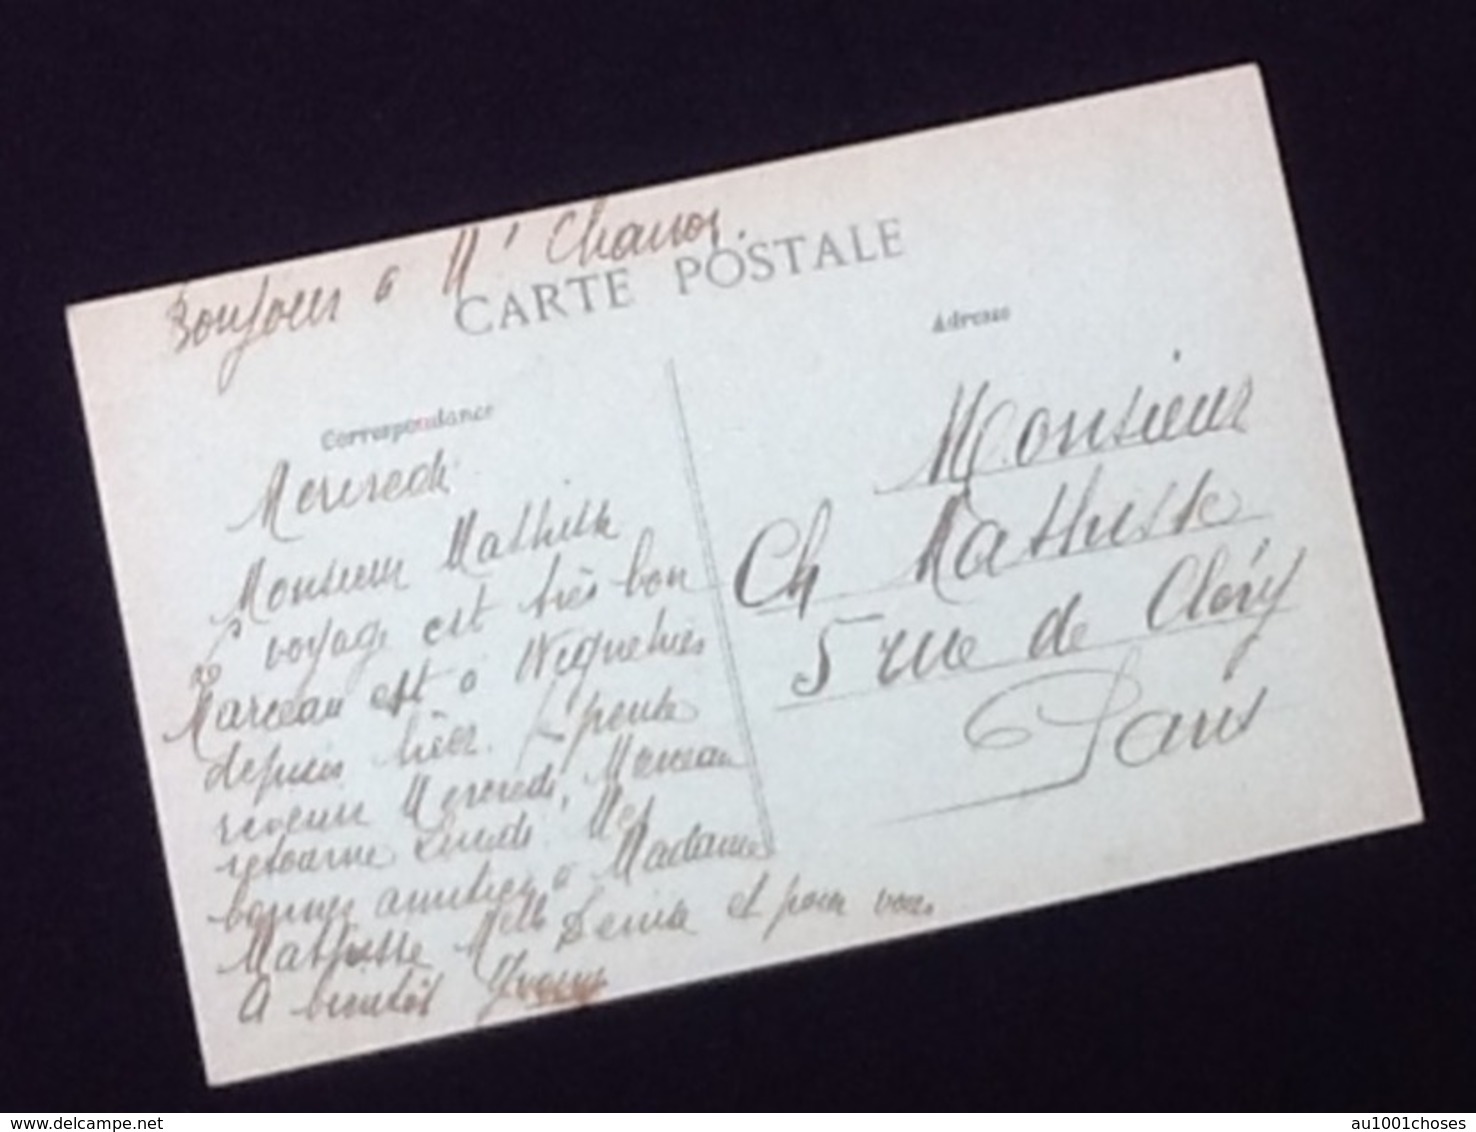 Bonjour à Mr Chanoz.
CARTE POSTALE
Correspondance
Mercredi
Monsieur Mathisse
voyage est très bon
Marceau est à Wiquehies
depuis hier. Je pense
revenir Mercredi, Marceau
retourne Lundi. Mes
bonnes amitiés à Madame
Mathisse Melle Denise et pour vous
A bientôt Yvonne
Adresse
Monsieur
Ch Mathisse
5 rue de Cléry
Paris
www.delcampe.net
au1001choses